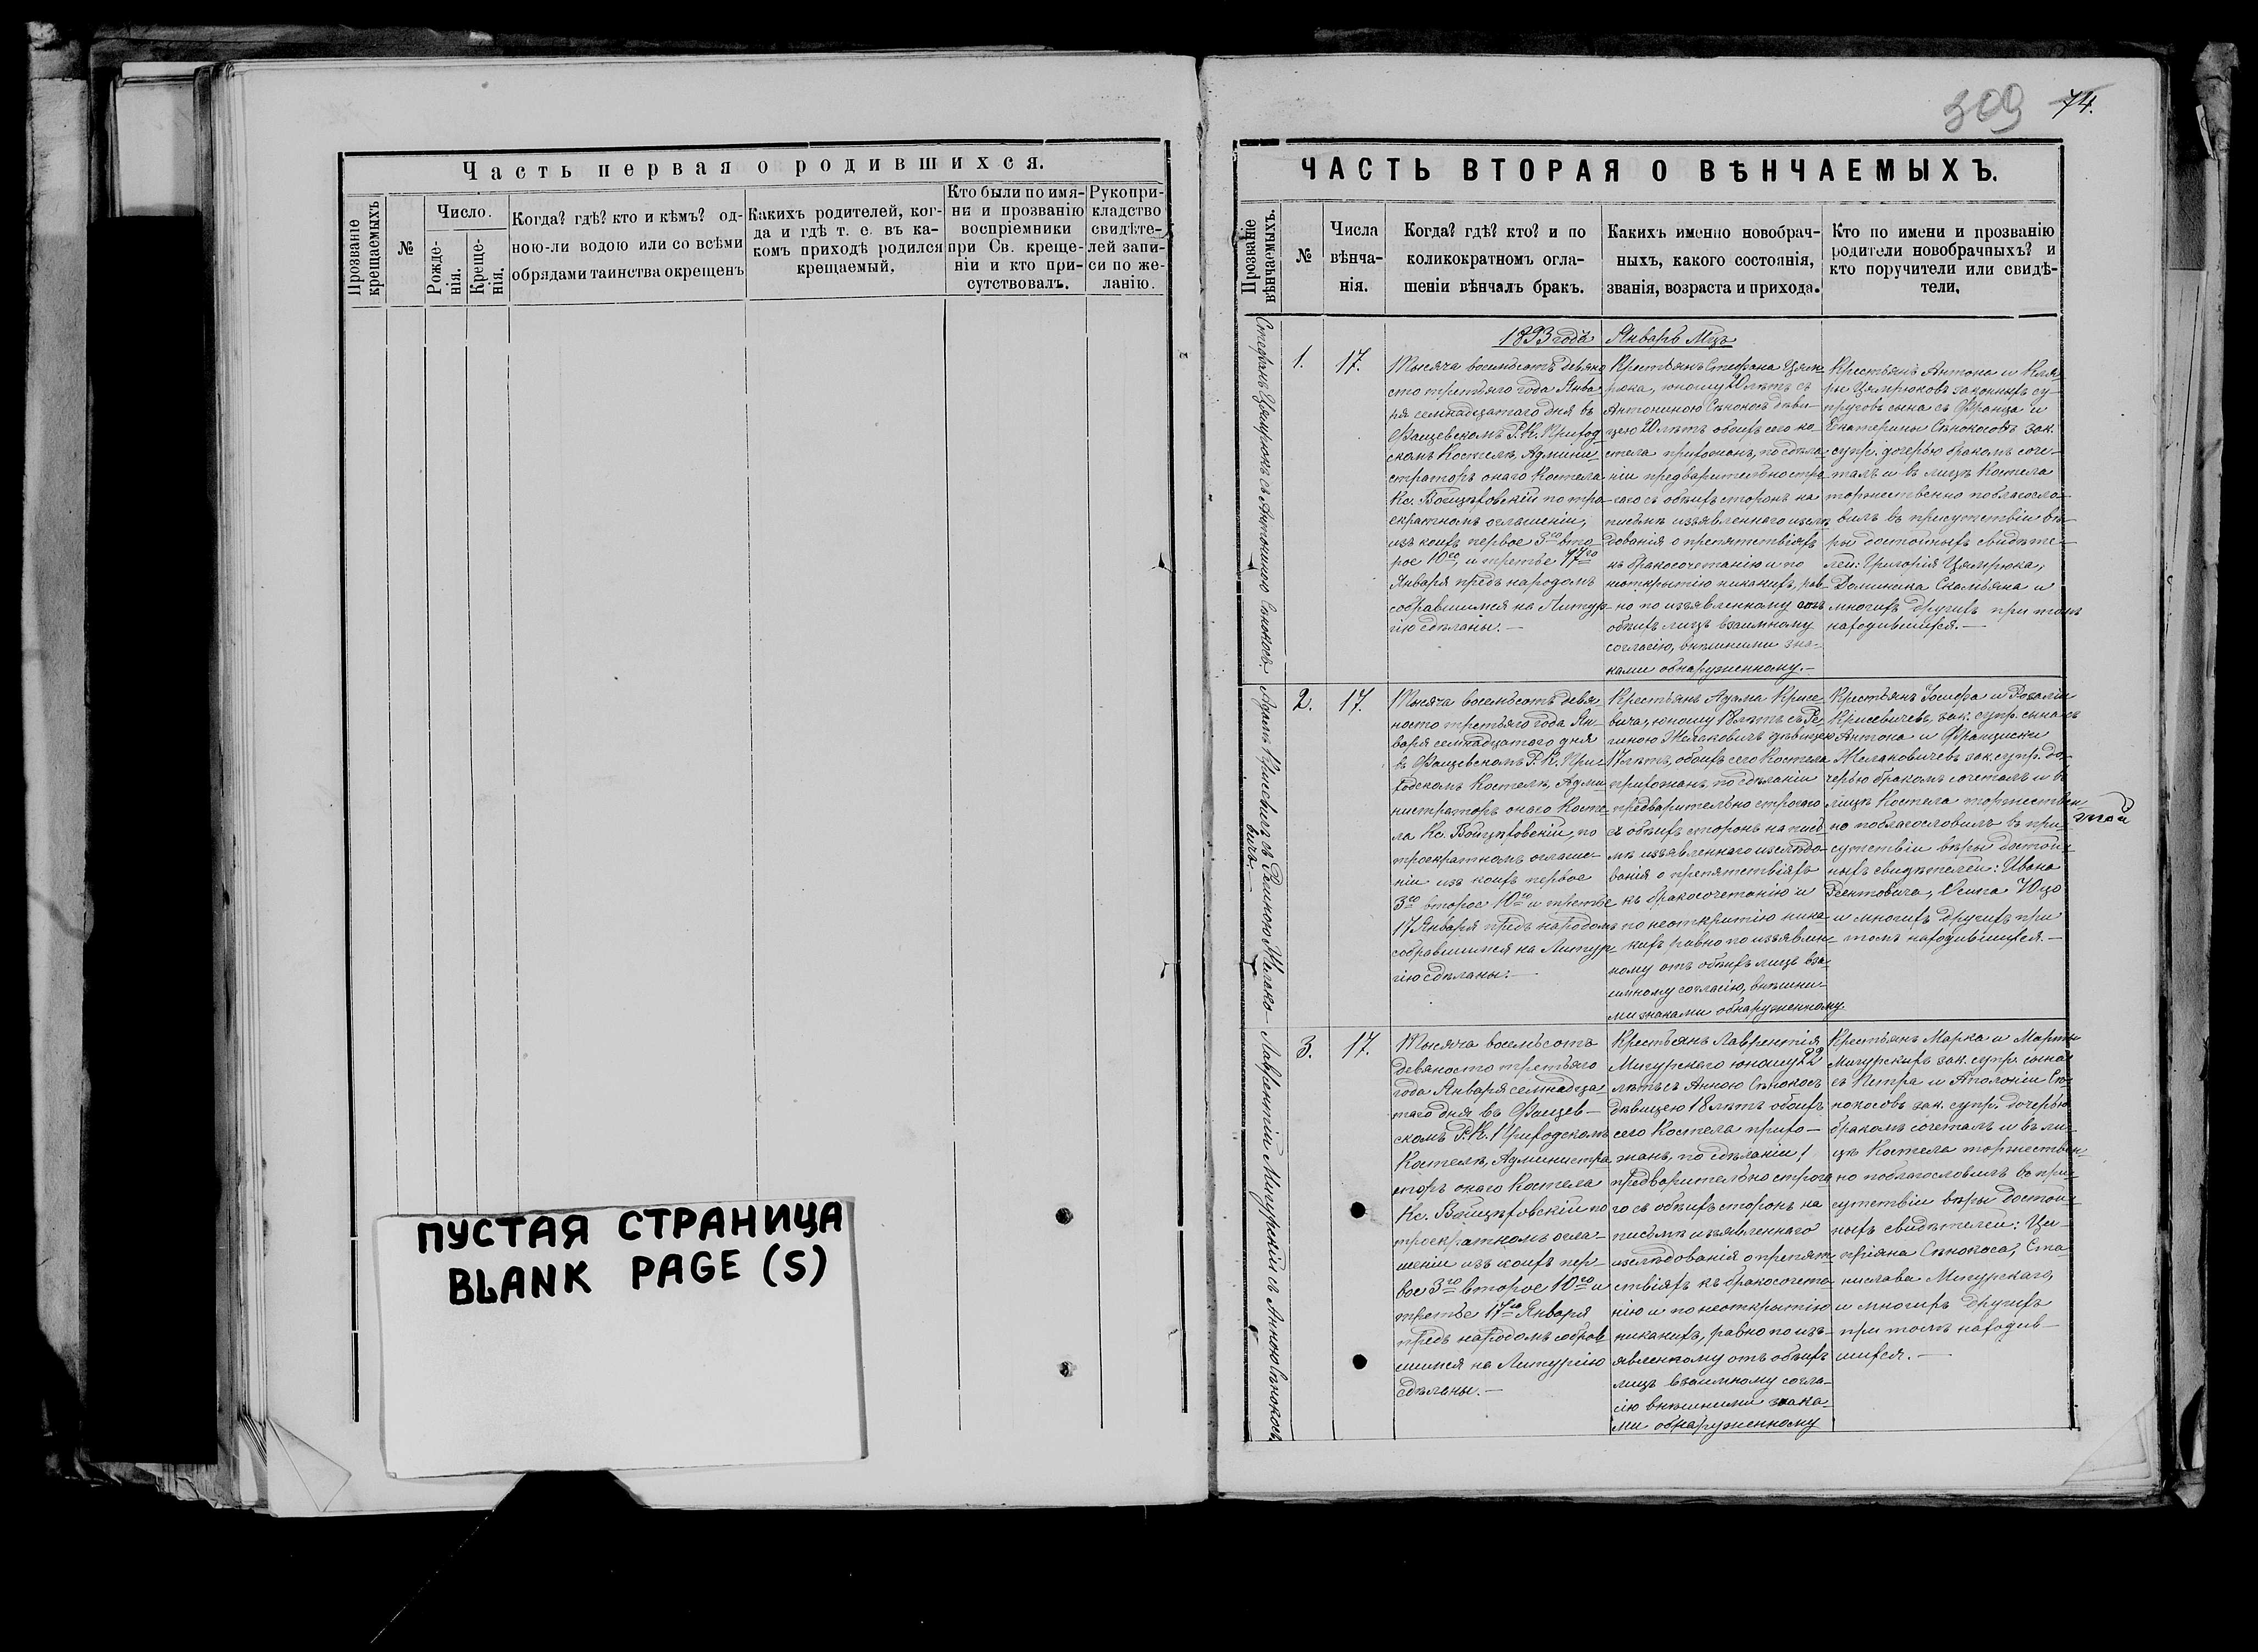 Часть первая о родившихся.
Прозваніе крещаемыхъ
№
Число.
Рожде-
нія.
Креще-
нія.
Когда? гдѣ? кто и кѣмъ? од-
ною-ли водою или со всѣми
обрядами таинства окрещенъ
Какихъ родителей, ког-
да и гдѣ т. е. въ ка-
комъ приходѣ родился
крещаемый,
Кто были по имя-
ни и прозванію
воспріемники
при Св. креще-
ніи и кто при-
сутствовалъ.
Рукопри-
кладство
свидѣте-
лей запи-
си по же-
ланію.
ПУСТАЯ СТРАНИЦА
BLANK PAGE (S)
309 74.
ЧАСТЬ ВТОРАЯ О ВѢНЧАЕМЫХЪ.
Прозваніе
вѣнчаемыхъ.
№
Числа
вѣнча-
нія.
Когда? гдѣ? кто? и по
коликократномъ огла-
шеніи вѣнчалъ бракъ.
Какихъ именно новобрач-
ныхъ, какого состоянія,
званія, возраста и прихода.
Кто по имени и прозванію
родители новобрачныхъ? и
кто поручители или свидѣ-
тели,
1893 года Январь Мцъ
Стефанъ Цямрюкъ съ Антониною Сѣнокосъ.
1.
17.
Тысяча восемьсотъ девяно
сто третьяго года Янва-
ря семнадцатаго дня въ
Фащевскомъ Р. К. Приход
скомъ Костелѣ, Админи-
страторъ онаго Костела
Кс. Войцѣховскій по тро-
екратномъ оглашеніи,
изъ коихъ первое 3го вто-
рое 10го, и третье 17го
Января предъ народомъ
собравшимся на Литур-
гію сдѣланы.—
Крестьянъ Стефана Цям-
рюка, юношу 20 лѣтъ съ
Антониною Сѣнокосъ дѣви-
цею 20 лѣтъ обоихъ сего ко-
стела прихожанъ, по сдѣла-
ніи предварительно стро-
гаго съ обѣихъ сторонъ на
письмѣ изъявленнаго изслѣ
дованія о препятствіяхъ
къ бракосочетанію и по
неоткрытію никакихъ, рав-
но по изъявленному отъ
обѣихъ лицъ взаимному
согласію, внѣшними зна-
ками обнаруженному.—
Крестьянъ Антона и Кля-
ры Цямрюковъ законныхъ су-
пруговъ сына съ Франца и
Екатерины Сѣнокосовъ зак.
супр. дочерью бракомъ соче-
талъ и въ лицѣ Костела
торжественно поблагосло-
вилъ въ присутствіи вѣ-
ры достойныхъ свидѣте-
лей: Григорія Цямрюка,
Доминика Скамьяна и
многихъ другихъ при томъ
находившихся.—
Адамъ Крисевичъ съ Региною Желако-
вичъ.—
2.
17.
Тысяча восемьсотъ девя
носто третьяго года Ян-
варя семнадцатого дня
въ Фащевскомъ Р. К. При-
ходскомъ Костелѣ, Адми-
нистраторъ онаго Косте-
ла Кс. Войцѣховскій, по
троекратномъ оглаше-
ніи изъ коихъ первое
3го второе 10го и третье
17 Января предъ народомъ
собравшимся на Литур-
гію сдѣланы.—
Крестьянъ Адама Крисе
вича, юношу 18 лѣтъ съ Ре-
гиною Желаковичъ дѣвицею
17 лѣтъ, обоихъ сего Костела
прихожанъ, по сдѣланіи
предварительно строгаго
съ обѣихъ сторонъ на пись-
мѣ изъявленнаго изслѣдо-
ванія о препятствіяхъ
къ бракосочетанію и
по неоткрытію ника-
кихъ равно по изъявлен-
ному отъ обѣихъ лицъ вза-
имному согласію, внѣшни-
ми знаками обнаруженному
Крестьянъ Іосифа и Розаліи
Крисевичевъ, зак. супр. сына съ
Антона и Франциски
Желаковичевъ зак. супр. до-
черью бракомъ сочеталъ и въ
лицѣ Костела торжествен-
но поблагословилъ въ при-
сутствіи вѣры достой-
ныхъ свидѣтелей: Ивана
Рентовича, Осипа Юцо
и многихъ другихъ при
томъ находившихся.—
Лаврентій Мигурскій съ Анною Сѣнокосъ
3.
17.
Тысяча восемьсотъ
девяносто третьяго
года Января семнадца-
таго дня въ Фащев-
скомъ Р. К. Приходскомъ
Костелѣ, Администра
торъ онаго Костела
Кс. Войцѣховскій по
троекратномъ огла-
шеніи изъ коихъ пер-
вое 3го второе 10го и
третье 17го Января
предъ народомъ собрав
шимся на Литургію
сдѣланы.—
Крестьянъ Лаврентія
Мигурскаго юношу 22
лѣтъ съ Анною Сѣнокосъ
дѣвицею 18 лѣтъ обоихъ
сего Костела прихо-
жанъ, по сдѣланіи
предварительно строга
го съ обѣихъ сторонъ на
письмѣ изъявленнаго
изслѣдованія о препят-
ствіяхъ къ бракосочета-
нію и по неоткрытію
никакихъ, равно по изъ-
явленному отъ обѣихъ
лицъ взаимному согла-
сію внѣшними знака-
ми обнаруженному
Крестьянъ Марка и Марты
Мигурскихъ зак. супр. сына
съ Петра и Аполоніи Сѣ-
нокосовъ зак. супр. дочерью
бракомъ сочеталъ и въ ли-
цѣ Костела торжествен-
но поблагословилъ въ при-
сутствіи вѣры достой-
ныхъ свидѣтелей: Ци-
пріяна Сѣнокоса, Ста-
нислава Мигурскаго,
и многихъ другихъ
при томъ находив-
шихся.—